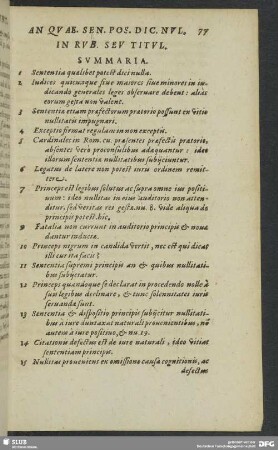 AN QVAE. SEN. POS. DIC. NVL. 77
IN RVB. SEV TITVL.
SVMMARIA.
1 Sententia quælibet potest dici nulla.
2 Iudices quicunque siue maiores siue minores in iu-
dicando generales leges obseruare debent: aliàs
eorum gesta non valent.
3 Sententia etiam præfectorum prætorio possunt ex vitio
nullitatis impugnari.
4 Exceptio firmat regulam in non exceptis.
5 Cardinales in Rom. cu. præsentes præfectis prætorio,
absentes verò proconsulibus adæquantur: ideo
illorum sententiæ nullitatibus subijciuntur.
6 Legatus de latere non potest iuris ordinem remit-
tere.
7 Princeps est legibus solutus ac supra omne ius posi-
tiuum: ideo nullitas in eius auditorio non atten-
ditur. sed veritas rei gestæ. nu. 8. Vide aliqua de
principis potest. hîc.
9 Fatalia non currunt in auditorio principis & noua
dantur induciæ.
10 Princeps nigrum in candida vertit, nec est qui dicat
illi cur ita facis?
11 Sententia supremi principis an & quibus nullitati-
bus subijciatur.
12 Princeps quandoque se declarat in procedendo nolle à
suis legibus declinare, & tunc solennitates iuris
seruandæ sunt.
13 Sententia & dispositio principis subijcitur nullitati-
bus à iure duntaxat naturali prouenientibus, nõ
autem à iure positiuo, & nu. 19.
14 Citationis defectus est de iure naturali, ideo vitiat
sententiam principis.
15 Nullitas proueniens ex omissione causæ cognitionis, ac
defectus
SLUB
DFG